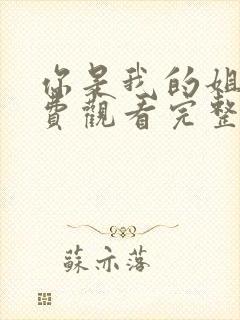 你是我的姐
費觀看完整
蘇亦落